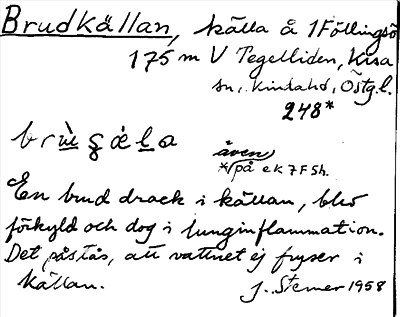 Brudkällan, källa å 1 Föllingsö
175 m V Tegelliden, Kisa
sn, Kinda hd, Östg.l.
248*
brùgǽla
även
*/på ek 7F5h.
En brud drack i källan, blev
förkyld och dog i lunginflammation.
Det påstås, att vattnet ej fryser i
källan.
J. Sterner 1958